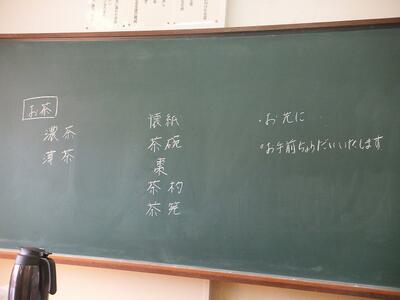 お茶
濃茶
薄茶
懐紙
茶碗
棗
茶杓
茶筅
・お先に
・お手前ちょうだいいたします